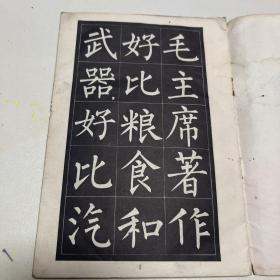 毛主席著作
好比粮食和
武器好比汽